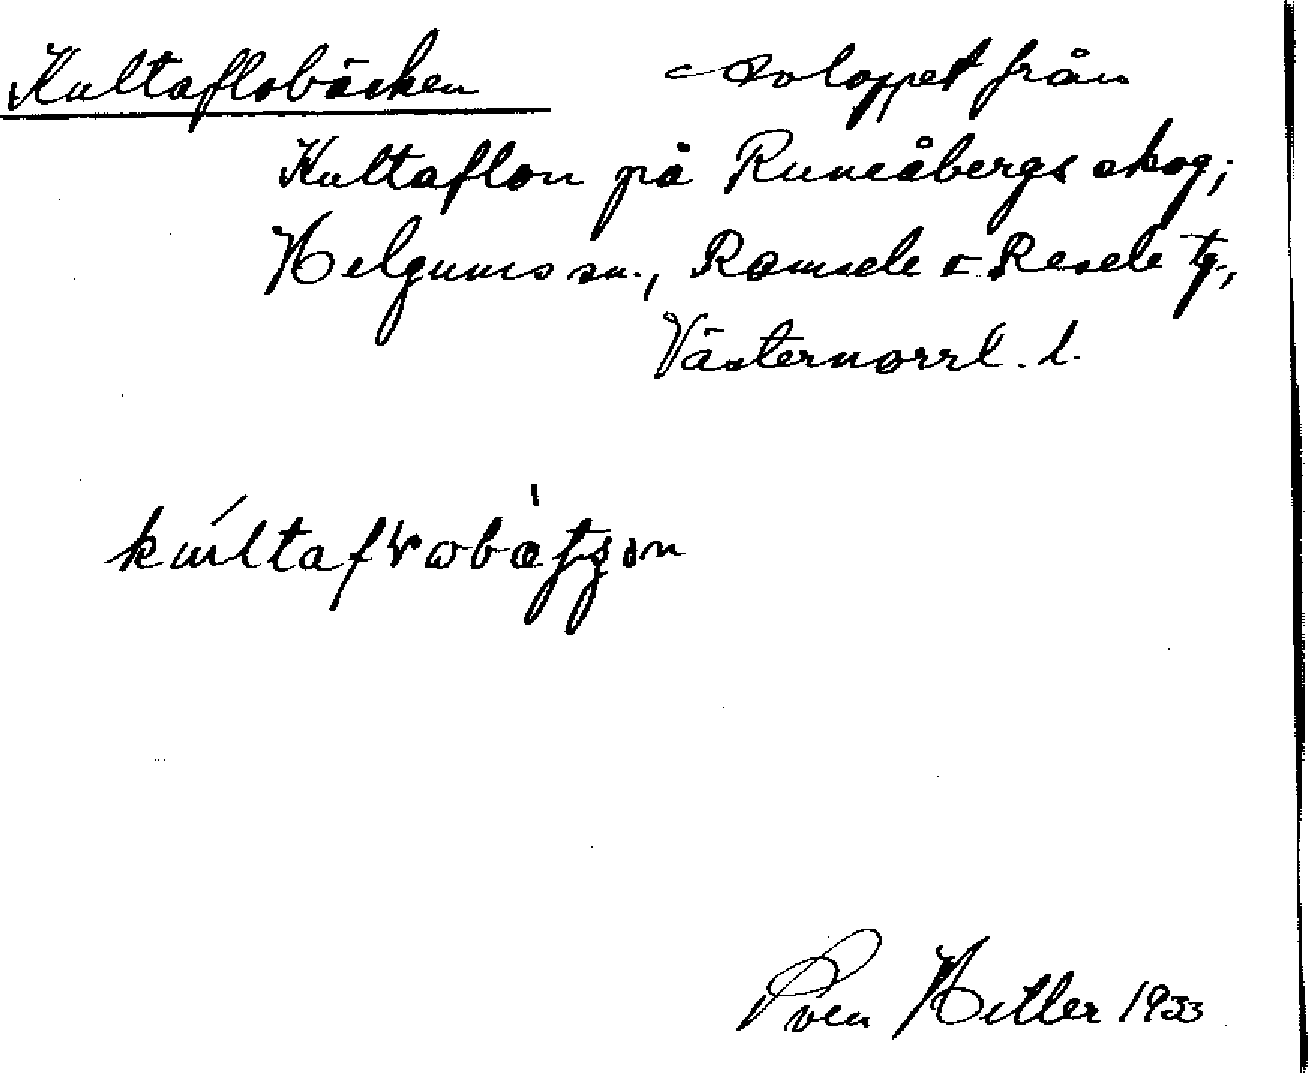 Kultaflobäcken avloppet från
Kultaflon på Runsåbergs skog;
Helgums sn., Ramsele o. Resele tg.,
Västernorrl. l.
Sven Hitler 1933